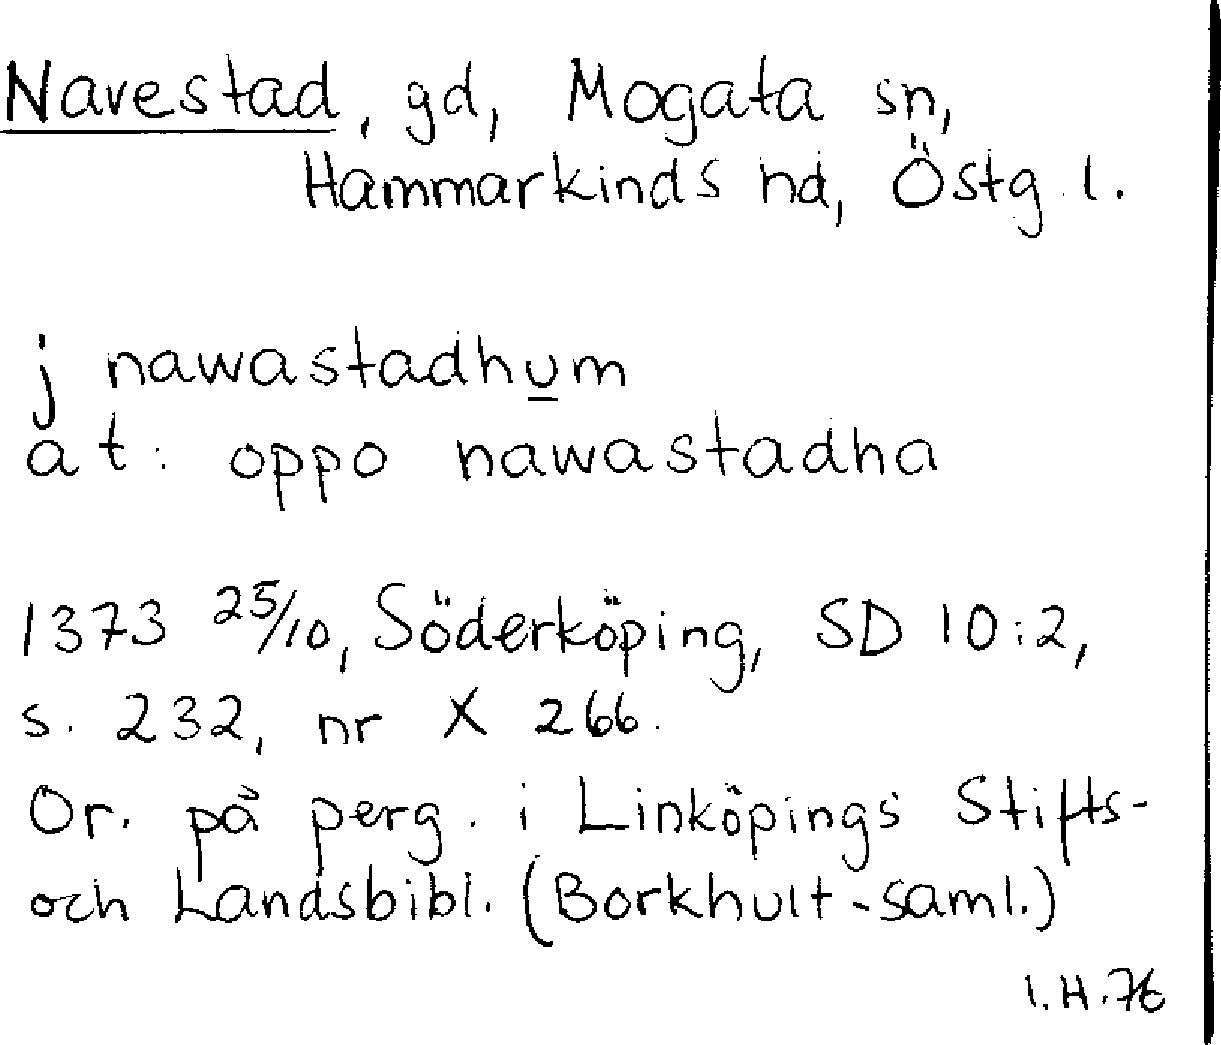 Navestad, gd, Mogata sn,
Hammarkinds hd, Östg. l.
j nawastadhum
at: oppo nawastadha
1373 25/10, Söderköping, SD 10:2,
s. 232, nr X 266.
Or. på perg. i Linköpings Stifts-
och Landsbibl. (Borkhult-saml.)
I.H.76